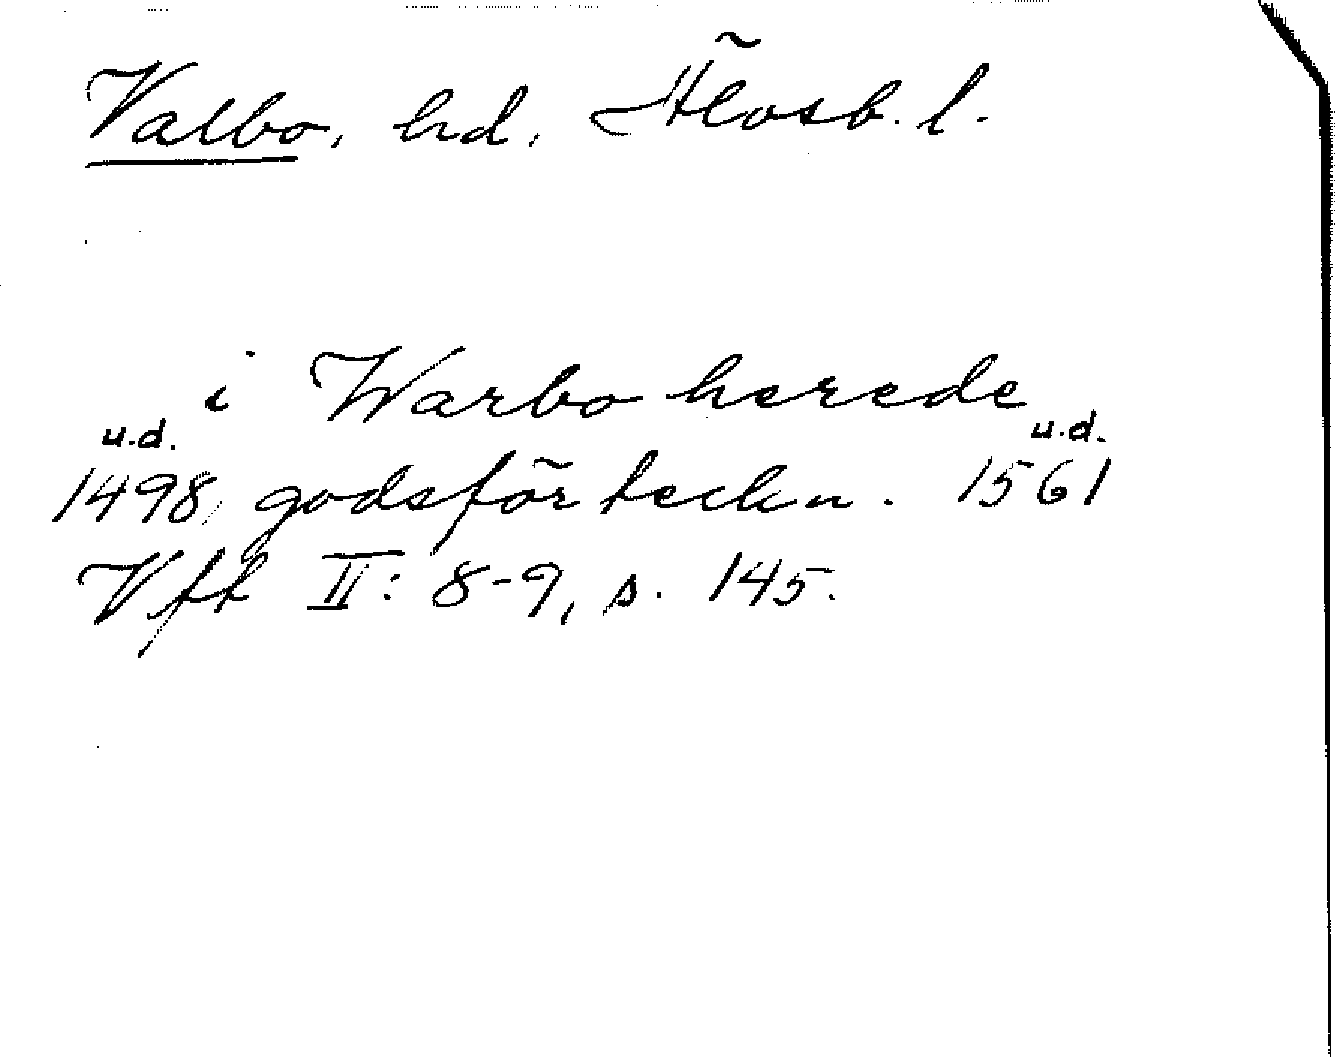 Valbo, hd, Älvsb. l.
i Warbo herede
u.d. u.d.
1498, godsförteckn. 1561
Vfk II: 8-9, s. 145.